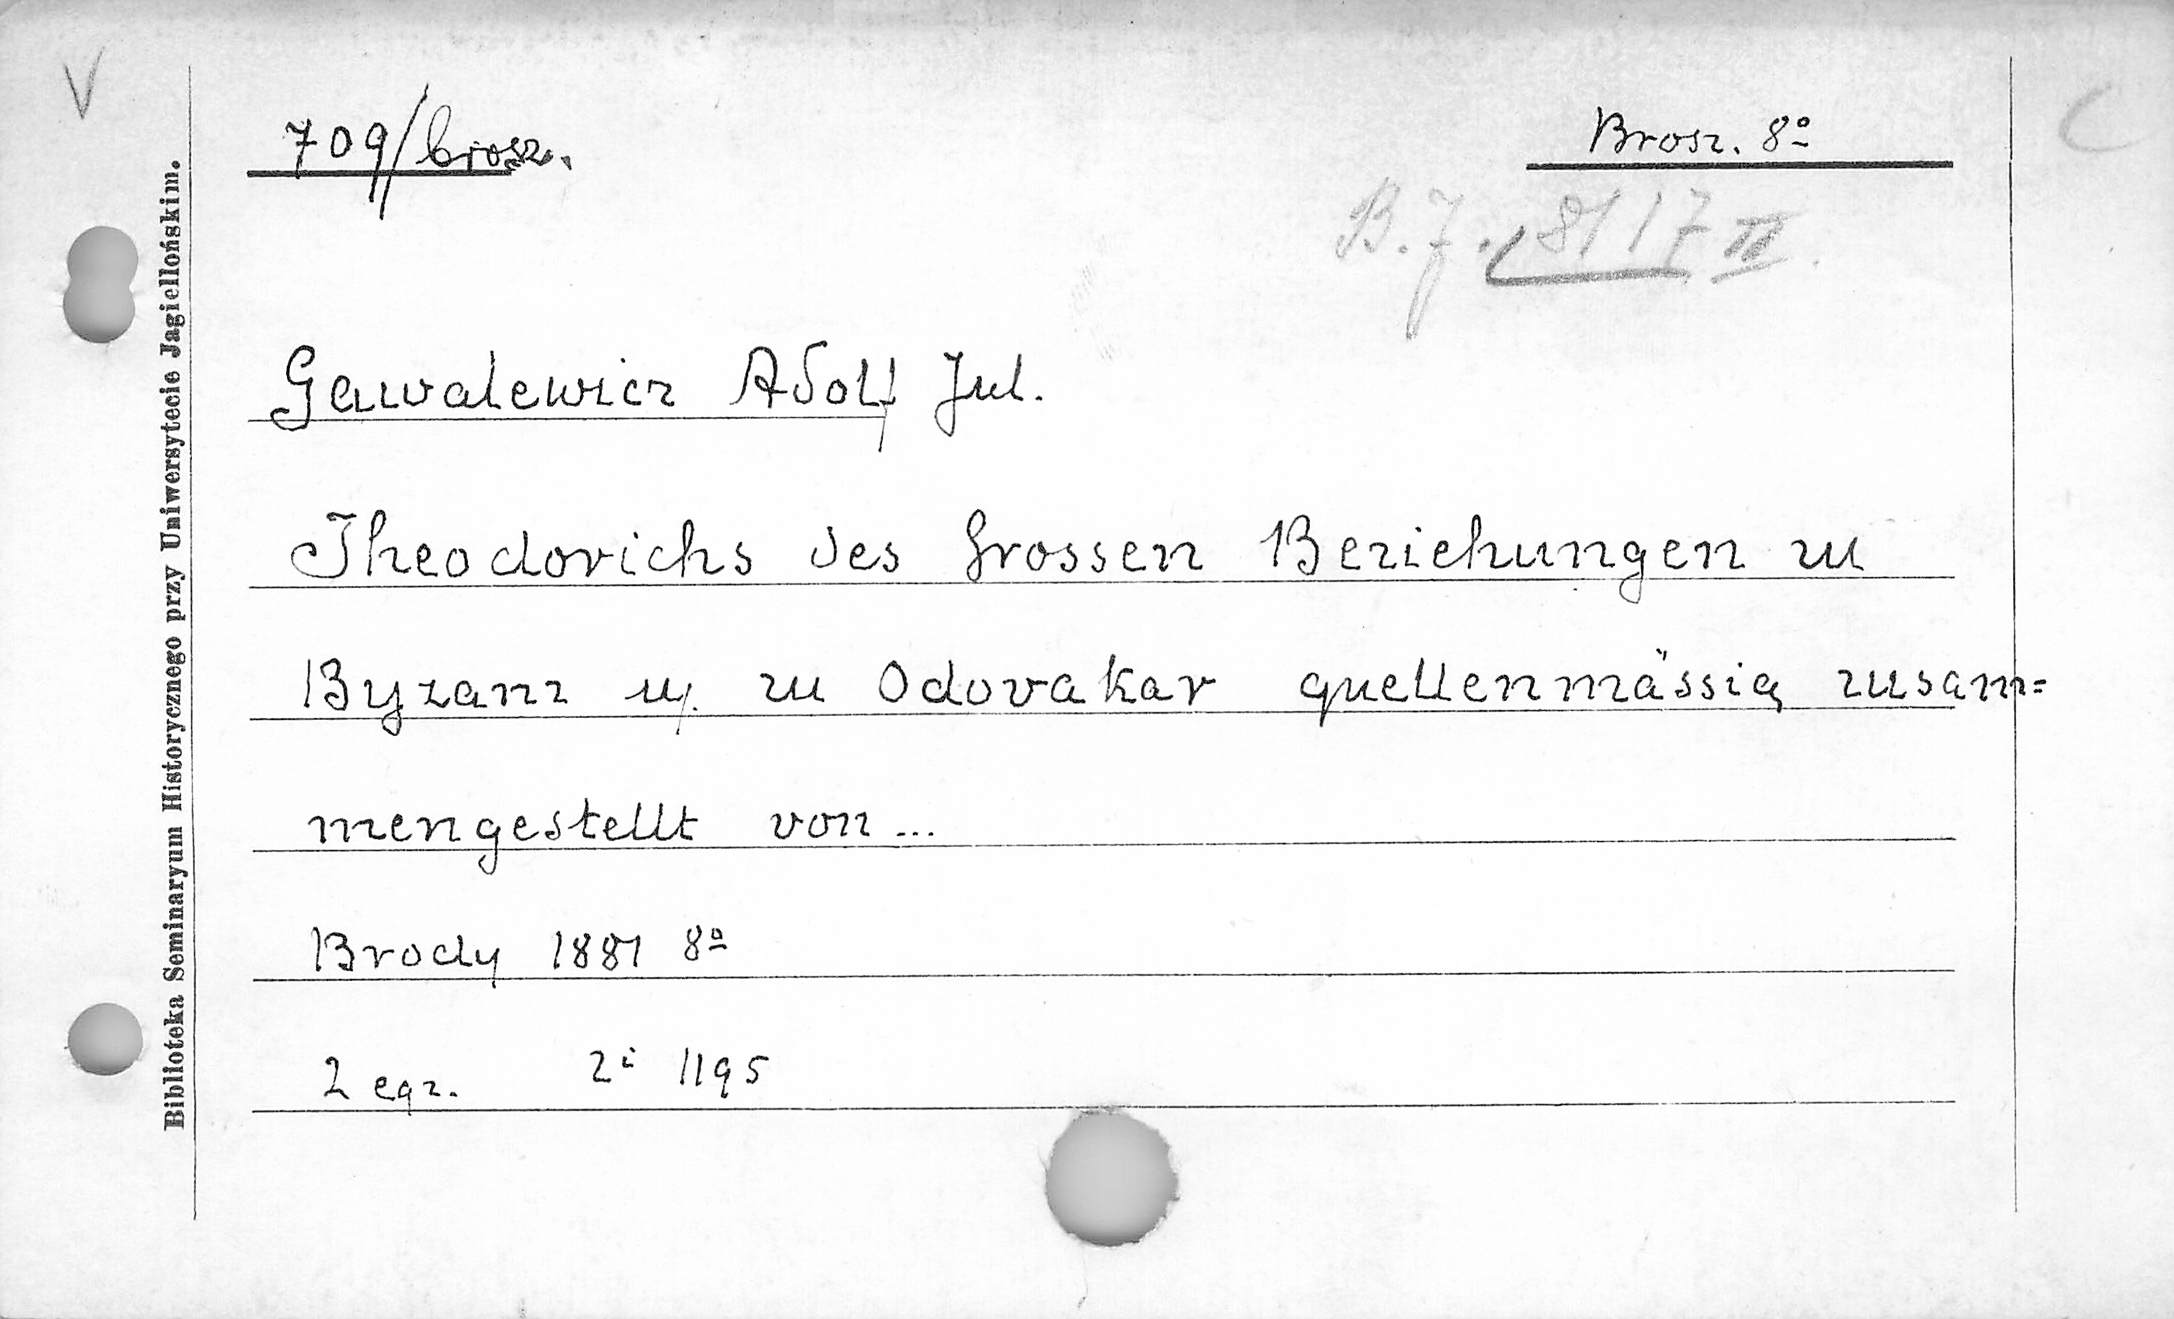 V
709/brosz.
Brosz. 8º
C
B.J. 8117 II.
Gawalewicz Adolf Jul.
Theodorichs des Grossen Beziehungen zu
Byzanz u. zu Odovakar quellenmässig zusam=
mengestellt von...
Brody 1881 8º
2 egz. 2i 1195
Biblioteka Seminaryum Historycznego przy Uniwersytecie Jagiellońskim.